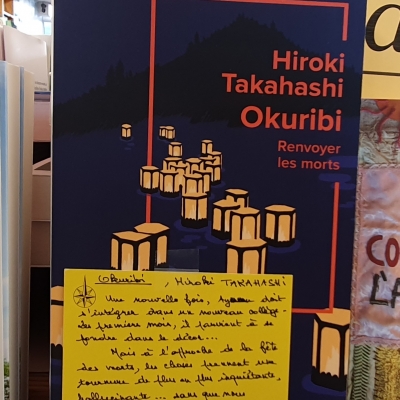 Hiroki
Takahashi
Okuribi
Renvoyer
les morts
Okuribi , Hiroki TAKAHASHI
Une nouvelle fois, Ayumu doit
s'intégrer dans un nouveau collège.
Les premiers mois, il parvient à se
fondre dans le décor...
Mais à l'approche de la fête
des morts, les choses prennent une
tournure de plus en plus inquiétante,
hallucinante... sans que nous
CO
L'A